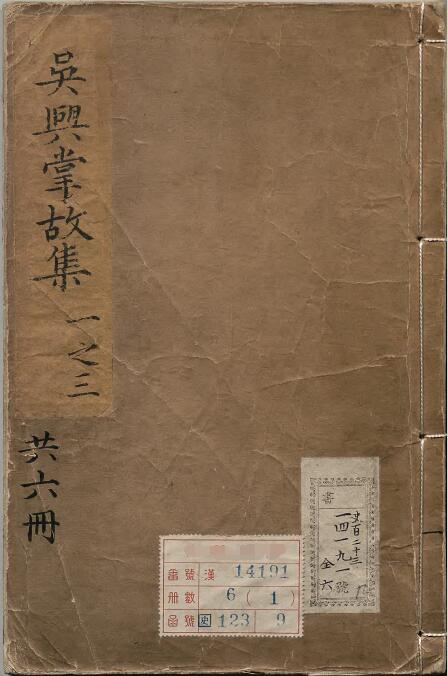 吳興掌故集 一之三
共六冊
番號 漢 14191
冊數 6 ( 1 )
函號 史 123 9
書
史百二十三
一四一九一號
全六